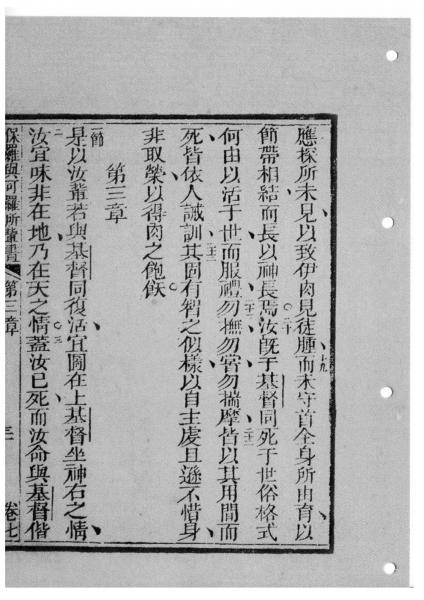 應探所未見以致伊肉見徒腫而未守首全身所由育以
十九
節帶相結而長以神長焉汝既于基督同死于世俗格式
二十
何由以活于世而服禮勿撫勿嘗勿揣摩皆以其用間而
二十一
二十二
死皆依人誡訓其固有智之似樣以自主虔且遜不惜身
二十三
非取榮以得肉之飽飫
第三章
一節
是以汝輩若與基督同復活宜圖在上基督坐神右之情
二
汝宜味非在地乃在天之情蓋汝已死而汝命與基督偕
三
保羅與可羅所輩書
第三章
三
卷七